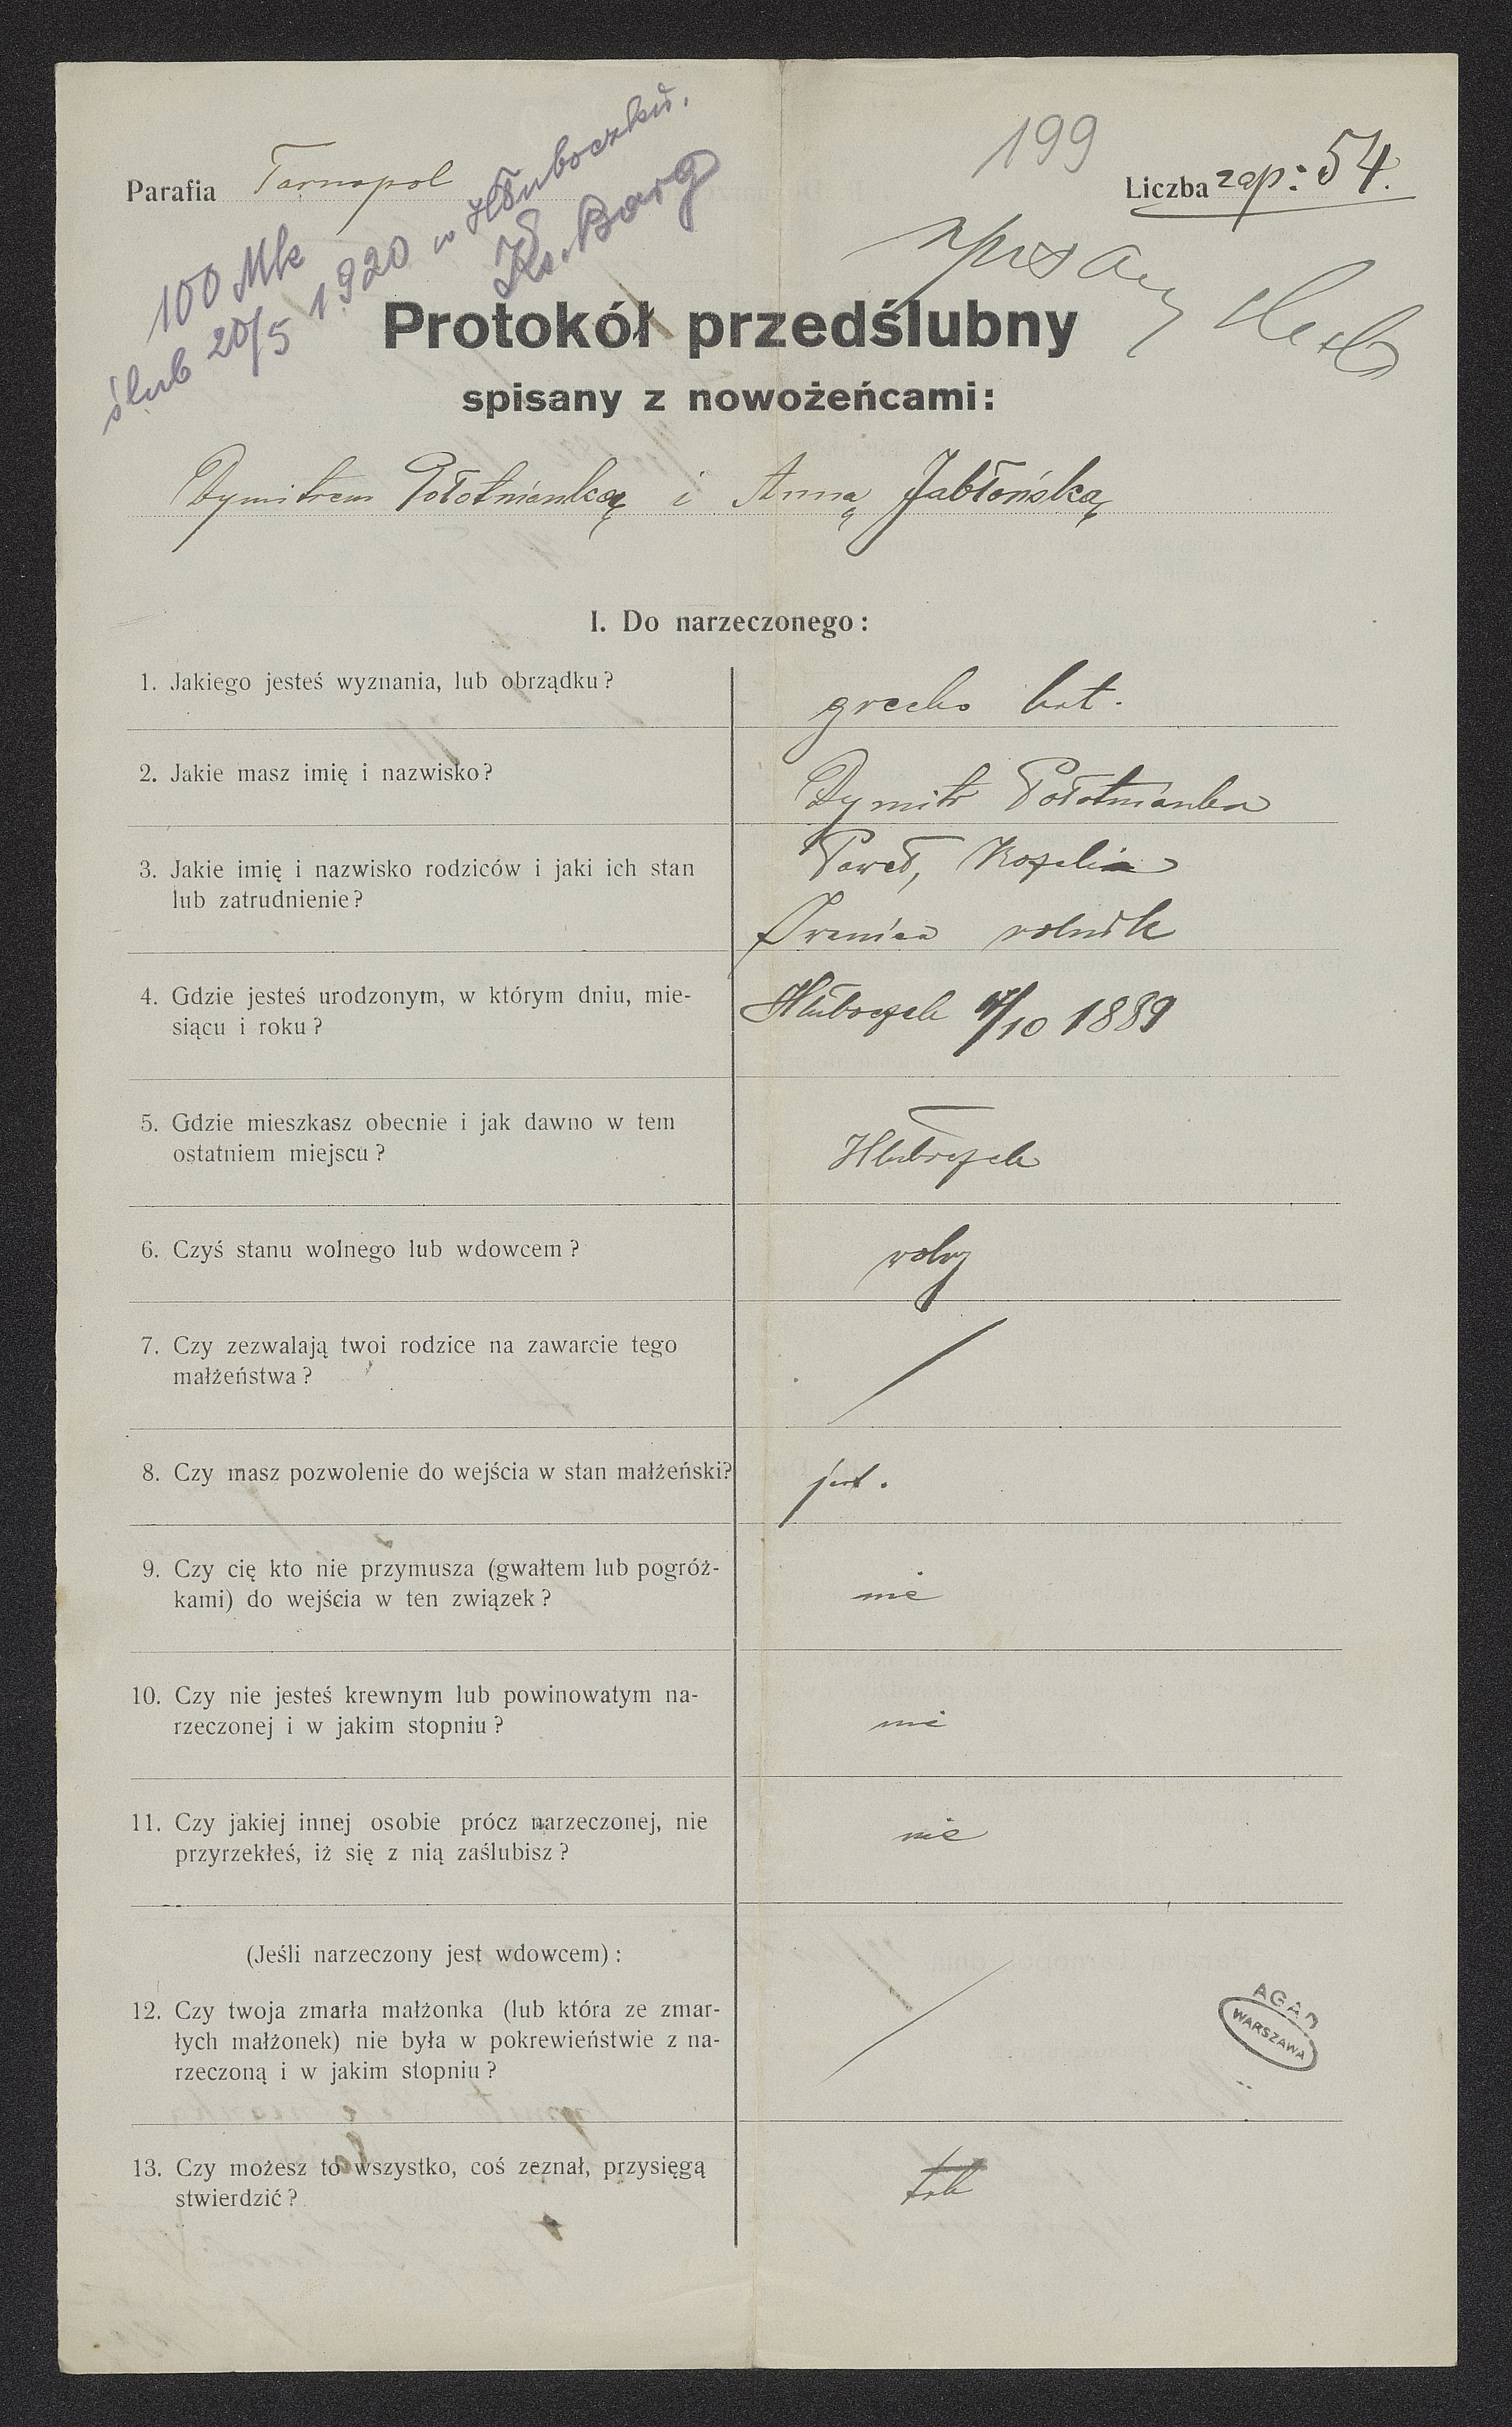 199
Parafia Tarnopol
Liczba zap: 54.
100 Mk
ślub 20/5 1920 w Hłuboczku.
Ks. Borg
Protokół przedślubny
spisany z nowożeńcami:
Dymitrem Połotnianką i Anną Jabłońską
I. Do narzeczonego:
1. Jakiego jesteś wyznania, lub obrządku?
grecko kat.
2. Jakie masz imię i nazwisko?
Dymitr Połotnianka
3. Jakie imię i nazwisko rodziców i jaki ich stan
lub zatrudnienie?
Paweł, Rozalia
rolnik
4. Gdzie jesteś urodzonym, w którym dniu, mie-
siącu i roku?
Hłuboczek /10 1889
5. Gdzie mieszkasz obecnie i jak dawno w tem
ostatniem miejscu?
Hłuboczek
6. Czyś stanu wolnego lub wdowcem?
wolny
7. Czy zezwalają twoi rodzice na zawarcie tego
małżeństwa?
8. Czy masz pozwolenie do wejścia w stan małżeński?
jest.
9. Czy cię kto nie przymusza (gwałtem lub pogróż-
kami) do wejścia w ten związek?
nie
10. Czy nie jesteś krewnym lub powinowatym na-
rzeczonej i w jakim stopniu?
nie
11. Czy jakiej innej osobie prócz narzeczonej, nie
przyrzekłeś, iż się z nią zaślubisz?
nie
(Jeśli narzeczony jest wdowcem):
12. Czy twoja zmarła małżonka (lub która ze zmar-
łych małżonek) nie była w pokrewieństwie z na-
rzeczoną i w jakim stopniu?
AGAD
WARSZAWA
13. Czy możesz to wszystko, coś zeznał, przysięgą
stwierdzić?
tak